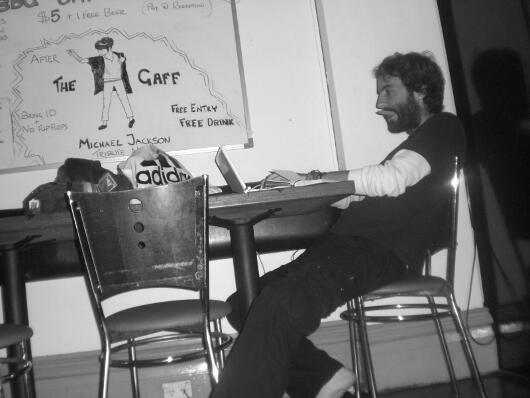 BBQ
$5 + 1 FREE BEER
(Pay @ RECEPTION)
AFTER
THE GAFF
BRING ID
NO FLIPFLOPS
FREE ENTRY
FREE DRINK
MICHAEL JACKSON
TRIBUTE
adidas